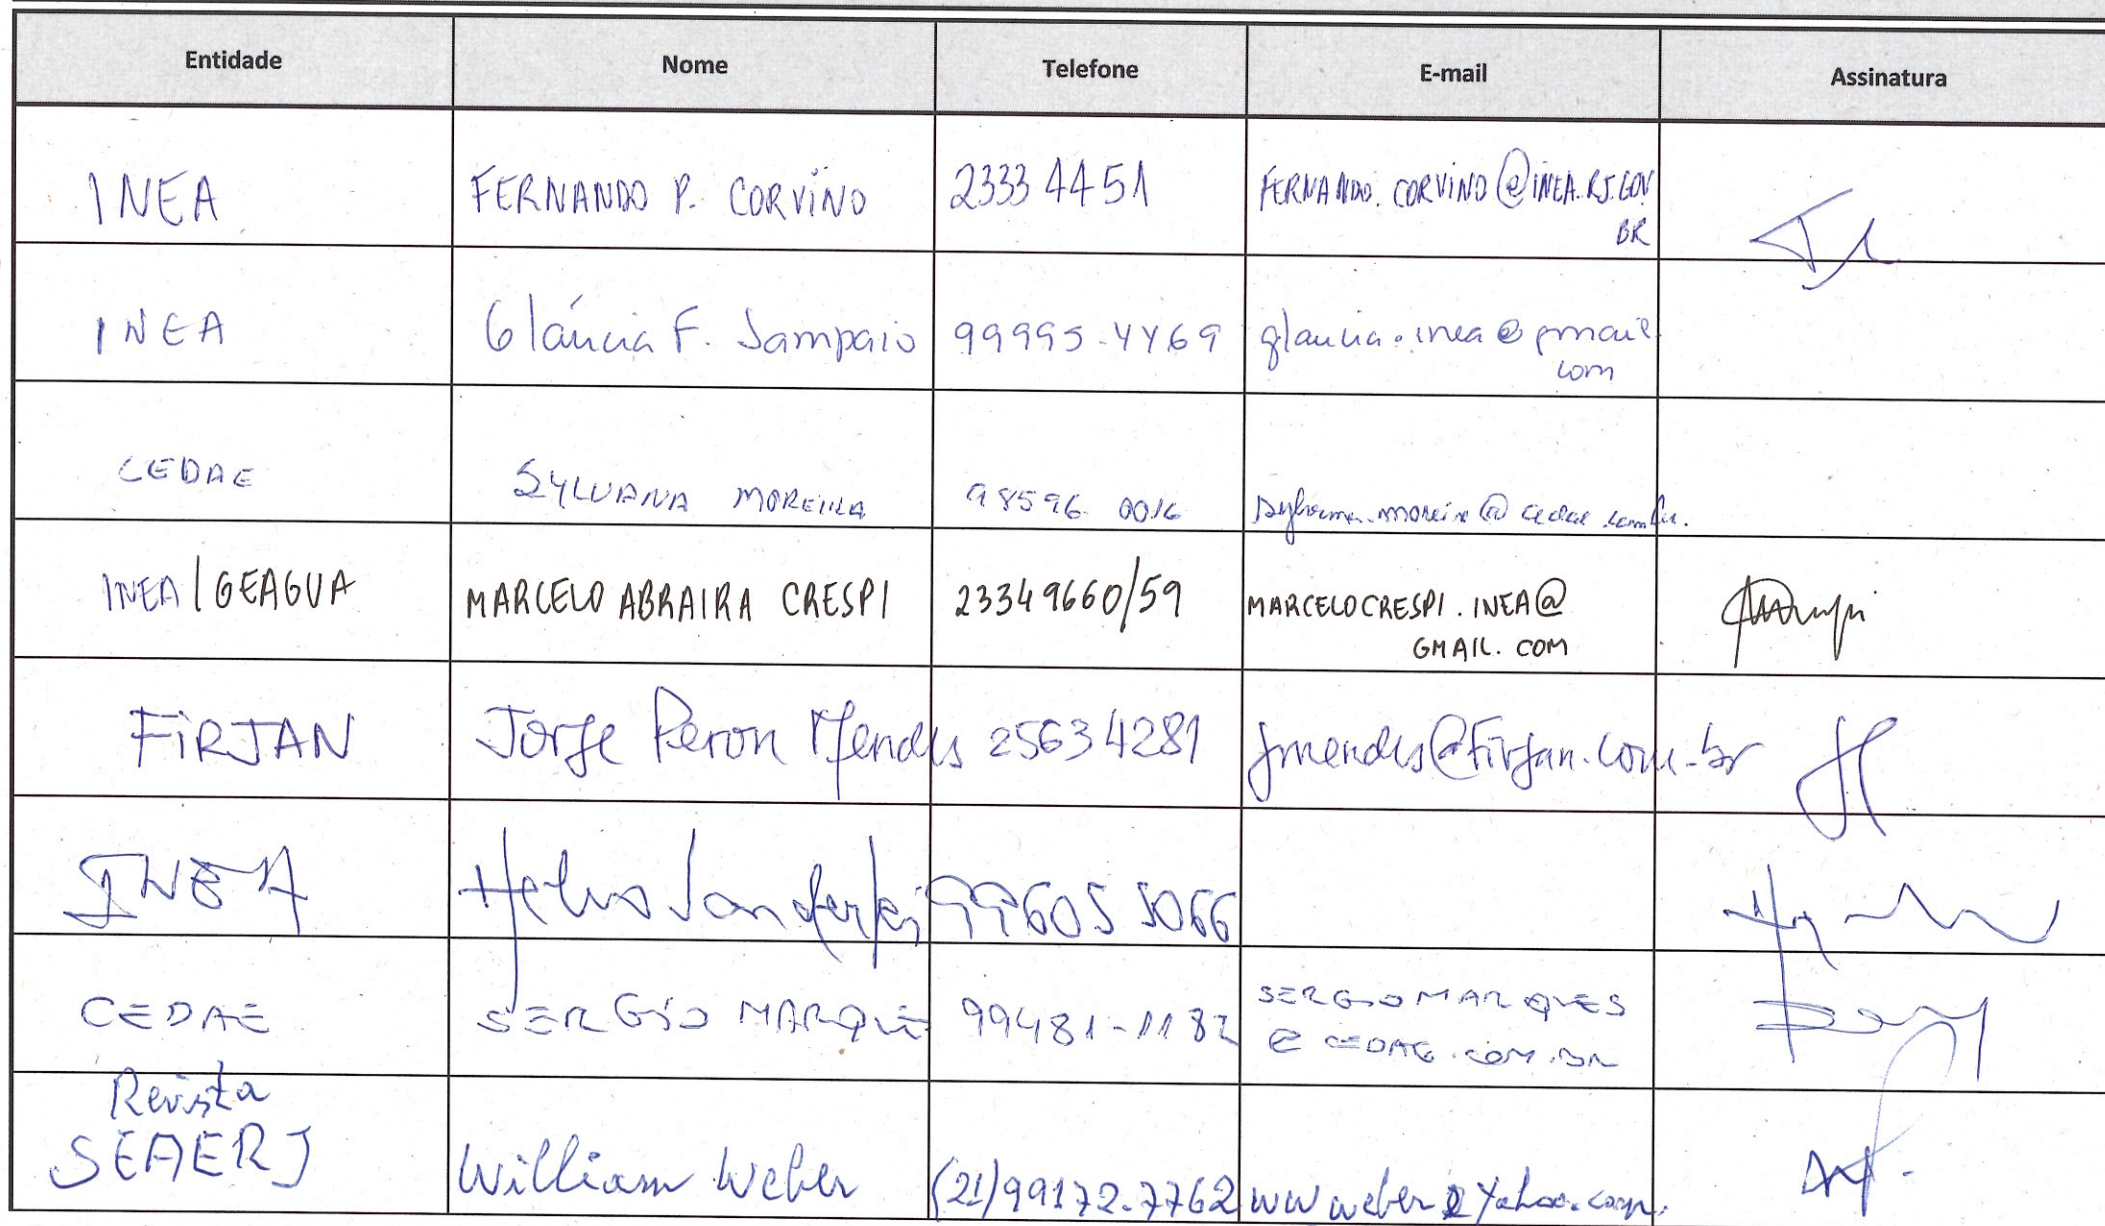 Entidade Nome Telefone E-mail Assinatura
INEA FERNANDO P. CORVINO 2333 4451 FERNANDO.CORVINO@INEA.RJ.GOV.
BR
INEA Gláucia F. Sampaio 99995-4469 glaucia.inea@gmail.
com
CEDAE SYLVANA MOREIRA 98596 0016 sylvana.moreira@cedae.com.br.
INEA/GEAGUA MARCELO ABRAIRA CRESPI 23349660/59 MARCELOCRESPI.INEA@
GMAIL.COM
FIRJAN Jorge Peron Mendes 25634281 jmendes@firjan.com.br
INEA 996055066
CEDAE SERGIO MARQUES 99481-1182 SERGIOMARQUES
@CEDAE.COM.BR
Revista
SEAERJ William Weber (21)99172-7762 wwweber@yahoo.com.